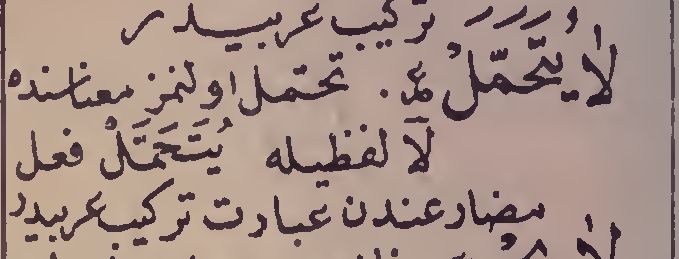 تركيب عربيدر
لَا يُتَحَمَّلُ ع. تحمل اولنمز معناسنده
لَا لفظيله يُتَحَمَّلْ فعل
مضارعندن عبارت تركيب عربيدر